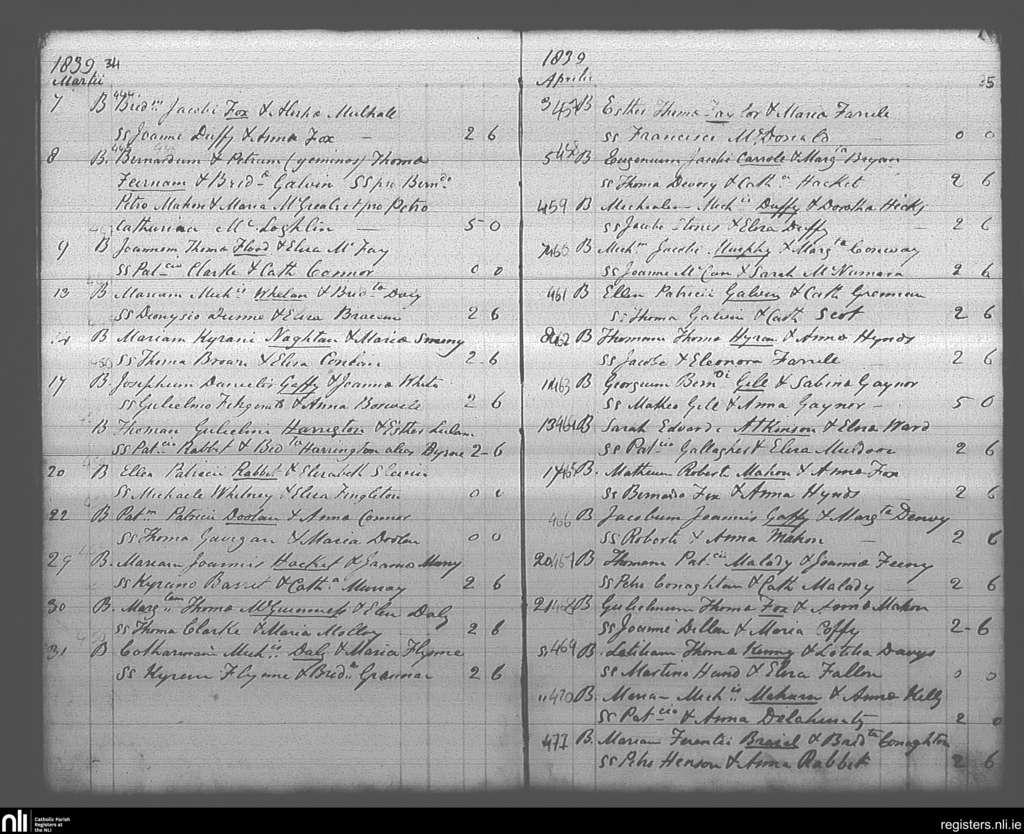 1839 34
Martii
7 B Brid.m Jacobi Fox & Mulhall
SS Joanne Duffy & Anna Fox — 2 6
8 B. Bernardum & Petrum (geminos) Thoma
& Brid.a Galvin SS pro Bern.do
Petro Mahon & Maria pro Petro
Catharina Mc Loghlin — 5 0
9 B Joannem Thoma Flood & Eliza Mc Fay
SS Pat.cio Clarke & Cath Connor 0 0
13 B Mariam Mich.is Whelan & Brid.ta Daly
SS Dionysio Dunne & Eliza 2 6
14 B Mariam Kyrani Naghtan & Maria
SS Thoma Brown & Eliza 2-6
17 B Josephum Danielis Gaffy & Joanna White
SS Gulielmo & Anna 2 6
B Thomam Gulielmi Harrigton & Esther
SS Pat.cio Rabbit & Brid.ta Harrington alias Byrne 2-6
20 B Ellen Patricii Rabbit & Elizabeth
SS Michaele Whitney & Eliza Fingleton 0 0
22 B Pat.m Patricii Doolan & Anna Connor
SS Thoma Gavigan & Maria Doolan 0 0
29 B. Mariam Joannis Hacket & Joanna
SS Kyrano Barret & Cath.a Murray 2 6
30 B. Marg.tam Thoma & Elen Daly
SS Thoma Clarke & Maria Molloy — 2 6
31 B Catharinam Mich.is Daly & Maria Flynne
SS Kyrem Flynne & Brid.a 2 6
1839
Aprilis 35
3 457 B Esther Thoma Taylor & Maria Farrele
SS Francisco McDonald — 0 0
5 458 B Eugenium Jacobi Carrole & Marg.ta Bryan
SS Thoma Devery & Cath.a Hacket 2 6
459 B Michaelem Mich.is Duffy & Dorotha Hicks
SS Jacobo & Eliza Duffy — 2 6
7 460 B Mich.m Jacobi Murphy & Marg.ta Conway
SS Joanne McCan & Sarah McNamara 2 6
461 B Ellen Patricii Galvin & Cath
SS Thoma Galvin & Cath Scot 2 6
8 462 B Thomam Thoma & Anna Hynds
SS Jacobo & Eleonora Farrele 2 6
10 463 B Georgium Bern.di Gill & Sabina Gaynor
SS Matteo Gill & Anna Gaynor — 5 0
13 464 B Sarah Edwardi Atkinson & Eliza Ward
SS Pat.cio Gallagher & Eliza 2 6
17 465 B. Matheum Roberti Mahon & Anna Fox
SS Bernardo Fox & Anna Hynds 2 6
466 B Jacobum Joannis Gaffy & Marg.ta
SS Roberto & Anna Mahon — 2 6
20 467 B Thomam Pat.cii Malady & Joanna
SS Petro Conaghtan & Cath Malady 2 6
21 468 B Gulielmum Thoma Fox & Anna Mahon
SS Joanne Dillon & Maria Coffy 2-6
469 B. Thoma Kenny & Letitia
SS Martino Hand & Eliza Fallon 0 0
470 B. Mariam Mich.is & Anna Kelly
SS Pat.cio & Anna 2 0
471 B. Mariam & Brid.ta Conaghton
SS Petro Henson & Anna Rabbit 2 6
nli Catholic Parish
Registers at
the NLI
registers.nli.ie